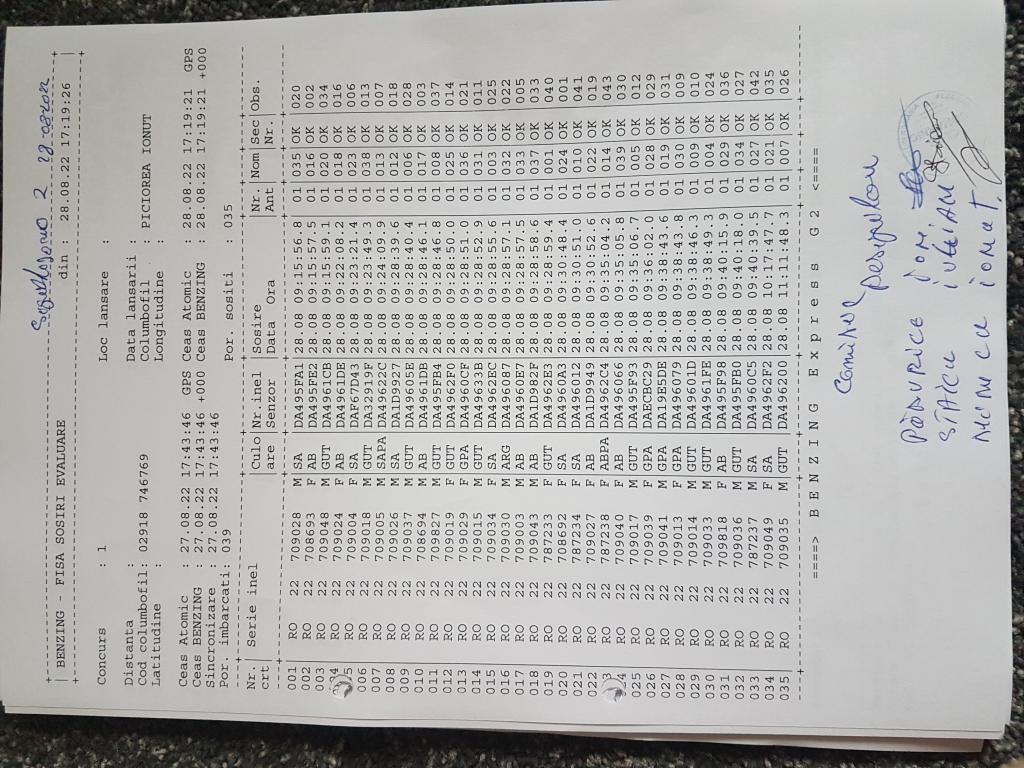 Columbodromo 2 28-08-2022
BENZING - FISA SOSIRI EVALUARE din : 28.08.22 17:19:26
Concurs : 1 Loc lansare :
Distanta : Data lansarii :
Cod columbofil: 02918 746769 Columbofil : PICIOREA IONUT
Latitudine : Longitudine :
Ceas Atomic : 27.08.22 17:43:46 GPS Ceas Atomic : 28.08.22 17:19:21 GPS
Ceas BENZING : 27.08.22 17:43:46 +000 Ceas BENZING : 28.08.22 17:19:21 +000
Sincronizare : 27.08.22 17:43:46
Por. imbarcati: 039 Por. sositi : 035
Nr. Serie inel Culo Nr.inel Sosire Nr. Nom Sec Obs.
crt are Senzor Data Ora Ant Nr.
001 RO 22 709028 M SA DA495FA1 28.08 09:15:56.8 01 035 OK 020
002 RO 22 708693 F AB DA495FE2 28.08 09:15:57.5 01 016 OK 002
003 RO 22 709048 M GUT DA4961CB 28.08 09:15:59.1 01 020 OK 034
RO 22 709024 F AB DA4961DE 28.08 09:22:08.2 01 018 OK 016
RO 22 709004 F SA DAF67D43 28.08 09:23:21.4 01 023 OK 006
006 RO 22 709018 M GUT DA32919F 28.08 09:23:49.3 01 038 OK 013
007 RO 22 709005 M SAPA DA49622C 28.08 09:24:09.9 01 013 OK 007
008 RO 22 709026 M SA DA1D9927 28.08 09:28:39.6 01 012 OK 018
009 RO 22 709037 M GUT DA49605E 28.08 09:28:40.4 01 006 OK 028
010 RO 22 708694 M AB DA4961DB 28.08 09:28:46.1 01 017 OK 003
011 RO 22 709827 M GUT DA495FB4 28.08 09:28:46.8 01 008 OK 037
012 RO 22 709019 F GUT DA4962F0 28.08 09:28:50.0 01 025 OK 014
013 RO 22 709029 F GPA DA4960CF 28.08 09:28:51.0 01 036 OK 021
014 RO 22 709015 M GUT DA49633B 28.08 09:28:52.9 01 031 OK 011
015 RO 22 709034 F SA DA4962EC 28.08 09:28:55.6 01 026 OK 025
016 RO 22 709030 M ARG DA4960B7 28.08 09:28:57.1 01 032 OK 022
017 RO 22 709003 M AB DA4960E7 28.08 09:28:57.5 01 033 OK 005
018 RO 22 709043 M AB DA1D982F 28.08 09:28:58.6 01 037 OK 033
019 RO 22 787233 F GUT DA4962E3 28.08 09:28:59.4 01 001 OK 040
020 RO 22 708692 F SA DA4960A3 28.08 09:30:48.4 01 024 OK 001
021 RO 22 787234 F SA DA496012 28.08 09:30:51.0 01 010 OK 041
022 RO 22 709027 F AB DA1D9949 28.08 09:30:52.6 01 022 OK 019
RO 22 787238 F ABPA DA4962C4 28.08 09:35:04.2 01 014 OK 043
RO 22 709040 F AB DA496066 28.08 09:35:05.8 01 039 OK 030
025 RO 22 709017 M GUT DA495F93 28.08 09:35:06.7 01 005 OK 012
026 RO 22 709039 F GPA DAECBC29 28.08 09:36:02.0 01 028 OK 029
027 RO 22 709041 M GPA DA19E5DE 28.08 09:38:43.6 01 019 OK 031
028 RO 22 709013 F GPA DA496079 28.08 09:38:43.8 01 030 OK 009
029 RO 22 709014 M GUT DA49601D 28.08 09:38:46.3 01 009 OK 010
030 RO 22 709033 M GUT DA4961FE 28.08 09:38:49.3 01 004 OK 024
031 RO 22 709818 F AB DA495F98 28.08 09:40:15.9 01 029 OK 036
032 RO 22 709036 M GUT DA495FB0 28.08 09:40:18.0 01 034 OK 027
033 RO 22 787237 M SA DA4960C5 28.08 09:40:39.5 01 027 OK 042
034 RO 22 709049 F SA DA4962F2 28.08 10:17:47.7 01 021 OK 035
035 RO 22 709035 M GUT DA496200 28.08 11:11:48.3 01 007 OK 026
====> BENZING Express G2 <====
PĂDURICE ION
STAICU IULIAN
IONUT.